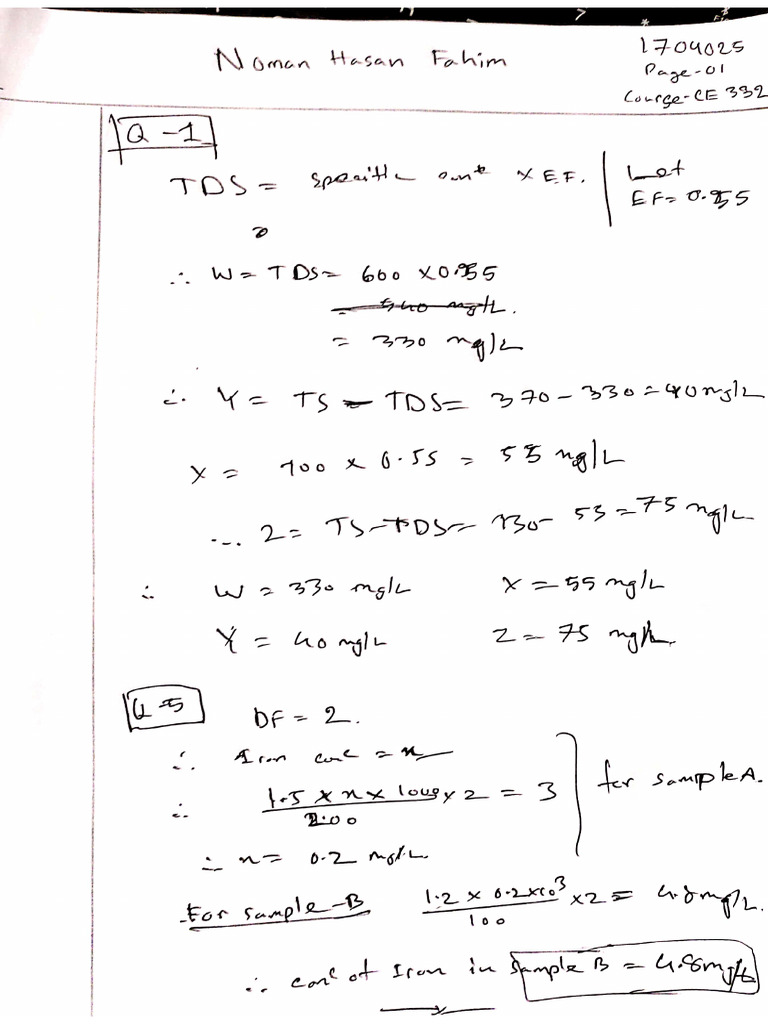 Noman Hasan Fahim
1704025
Page-01
Course-CE 332
Q-1
TDS = specific cont × E.F. | Let
EF = 0.55
∴ W = TDS = 600 × 0.55
= 540 mg/L.
= 330 mg/L
∴ Y = TS - TDS = 370 - 330 = 40 mg/L
X = 100 × 0.55 = 55 mg/L
∴ Z = TS - TDS = 130 - 55 = 75 mg/L
∴ W = 330 mg/L X = 55 mg/L
Y = 40 mg/L Z = 75 mg/L
Q-5
DF = 2.
∴ Iron conc = x
∴ 1.5 × x × 1000 / 200 × 2 = 3
for sample A.
∴ x = 0.2 mg/L.
For sample-B 1.2 × 0.2 × 10³ / 100 × 2 = 4.8 mg/L.
∴ conc of Iron in Sample B = 4.8 mg/L